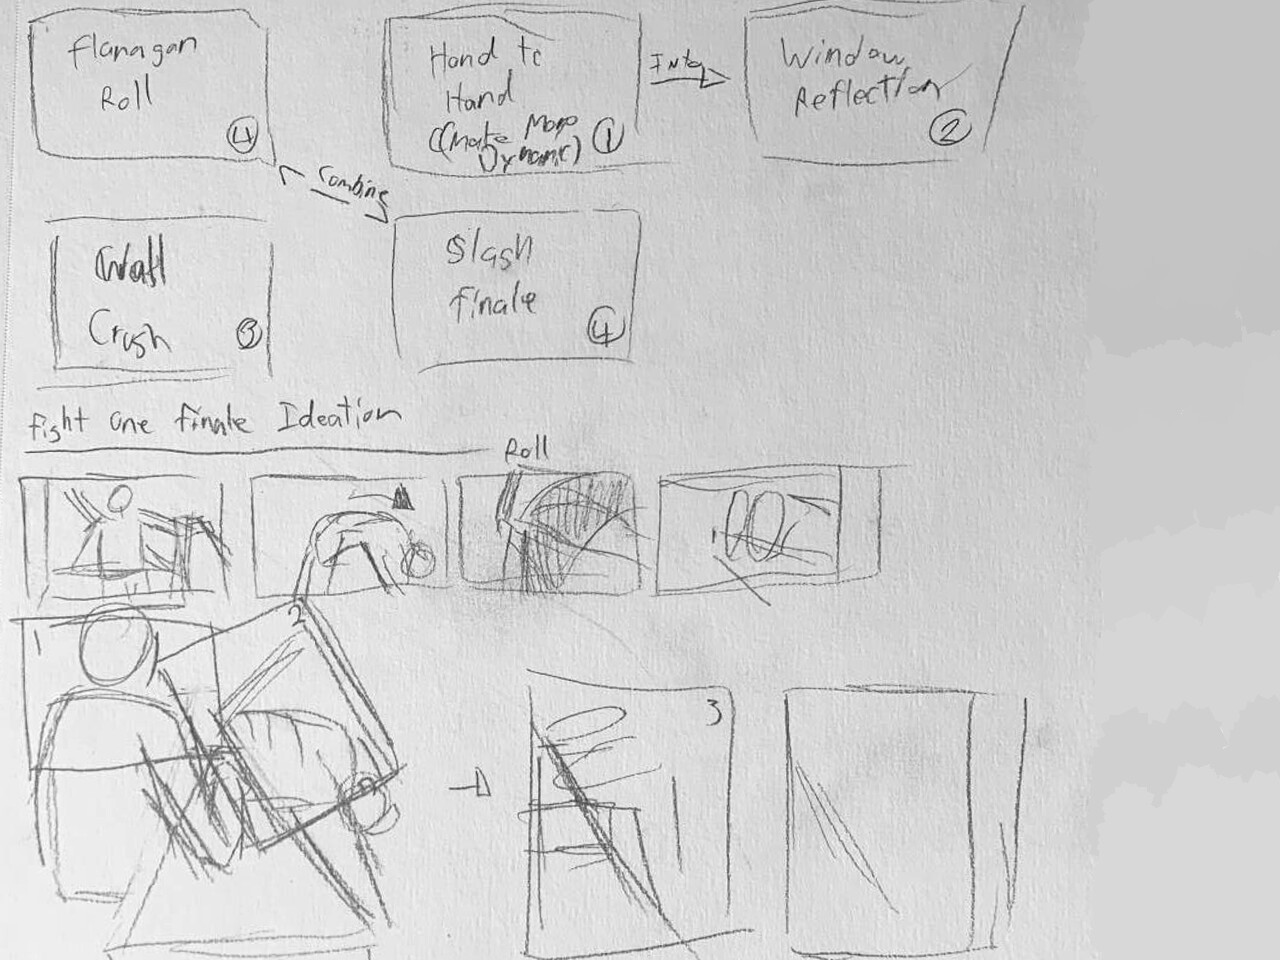 Flanagan
Roll
4
Hand to
Hand
(Make More
Dynamic)
1
Into
Window
Reflection
2
Combine
Wall
Crush
3
Slash
Finale
4
Fight One Finale Ideation
Roll
2
3